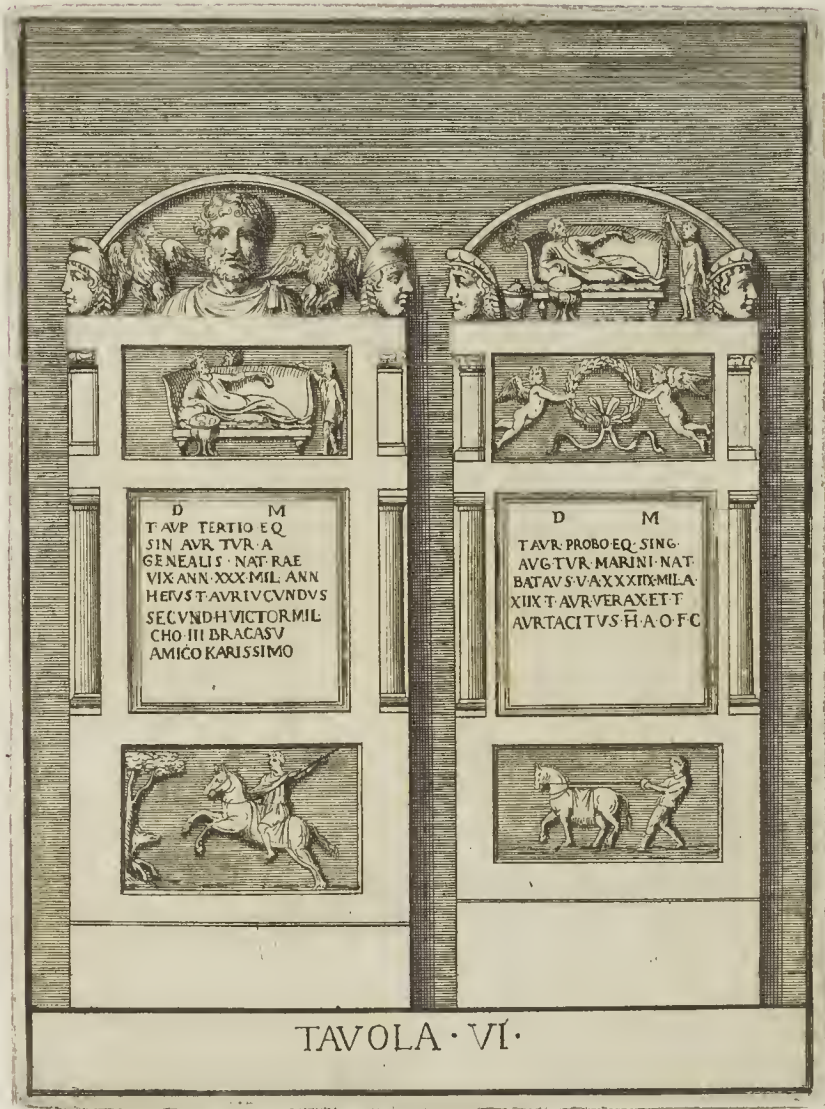 D M
T AVP TERTIO EQ
SIN AVR TVR A
GENEALIS · NAT RAE
VIX ANN · XXX · MIL ANN
HEIVS T · AVR IVCVNDVS
SECVND · H VICTOR MIL
CHO · III BRACASV
AMICO KARISSIMO
D M
T AVR · PROBO · EQ · SING ·
AVG · TVR · MARINI · NAT ·
BATAVS · V · A · XXXIIX · MIL · A ·
XIIX T · AVR VERAX · ET · T
AVR TACITVS · H̅ · A · O · F · C
TAVOLA · VI ·